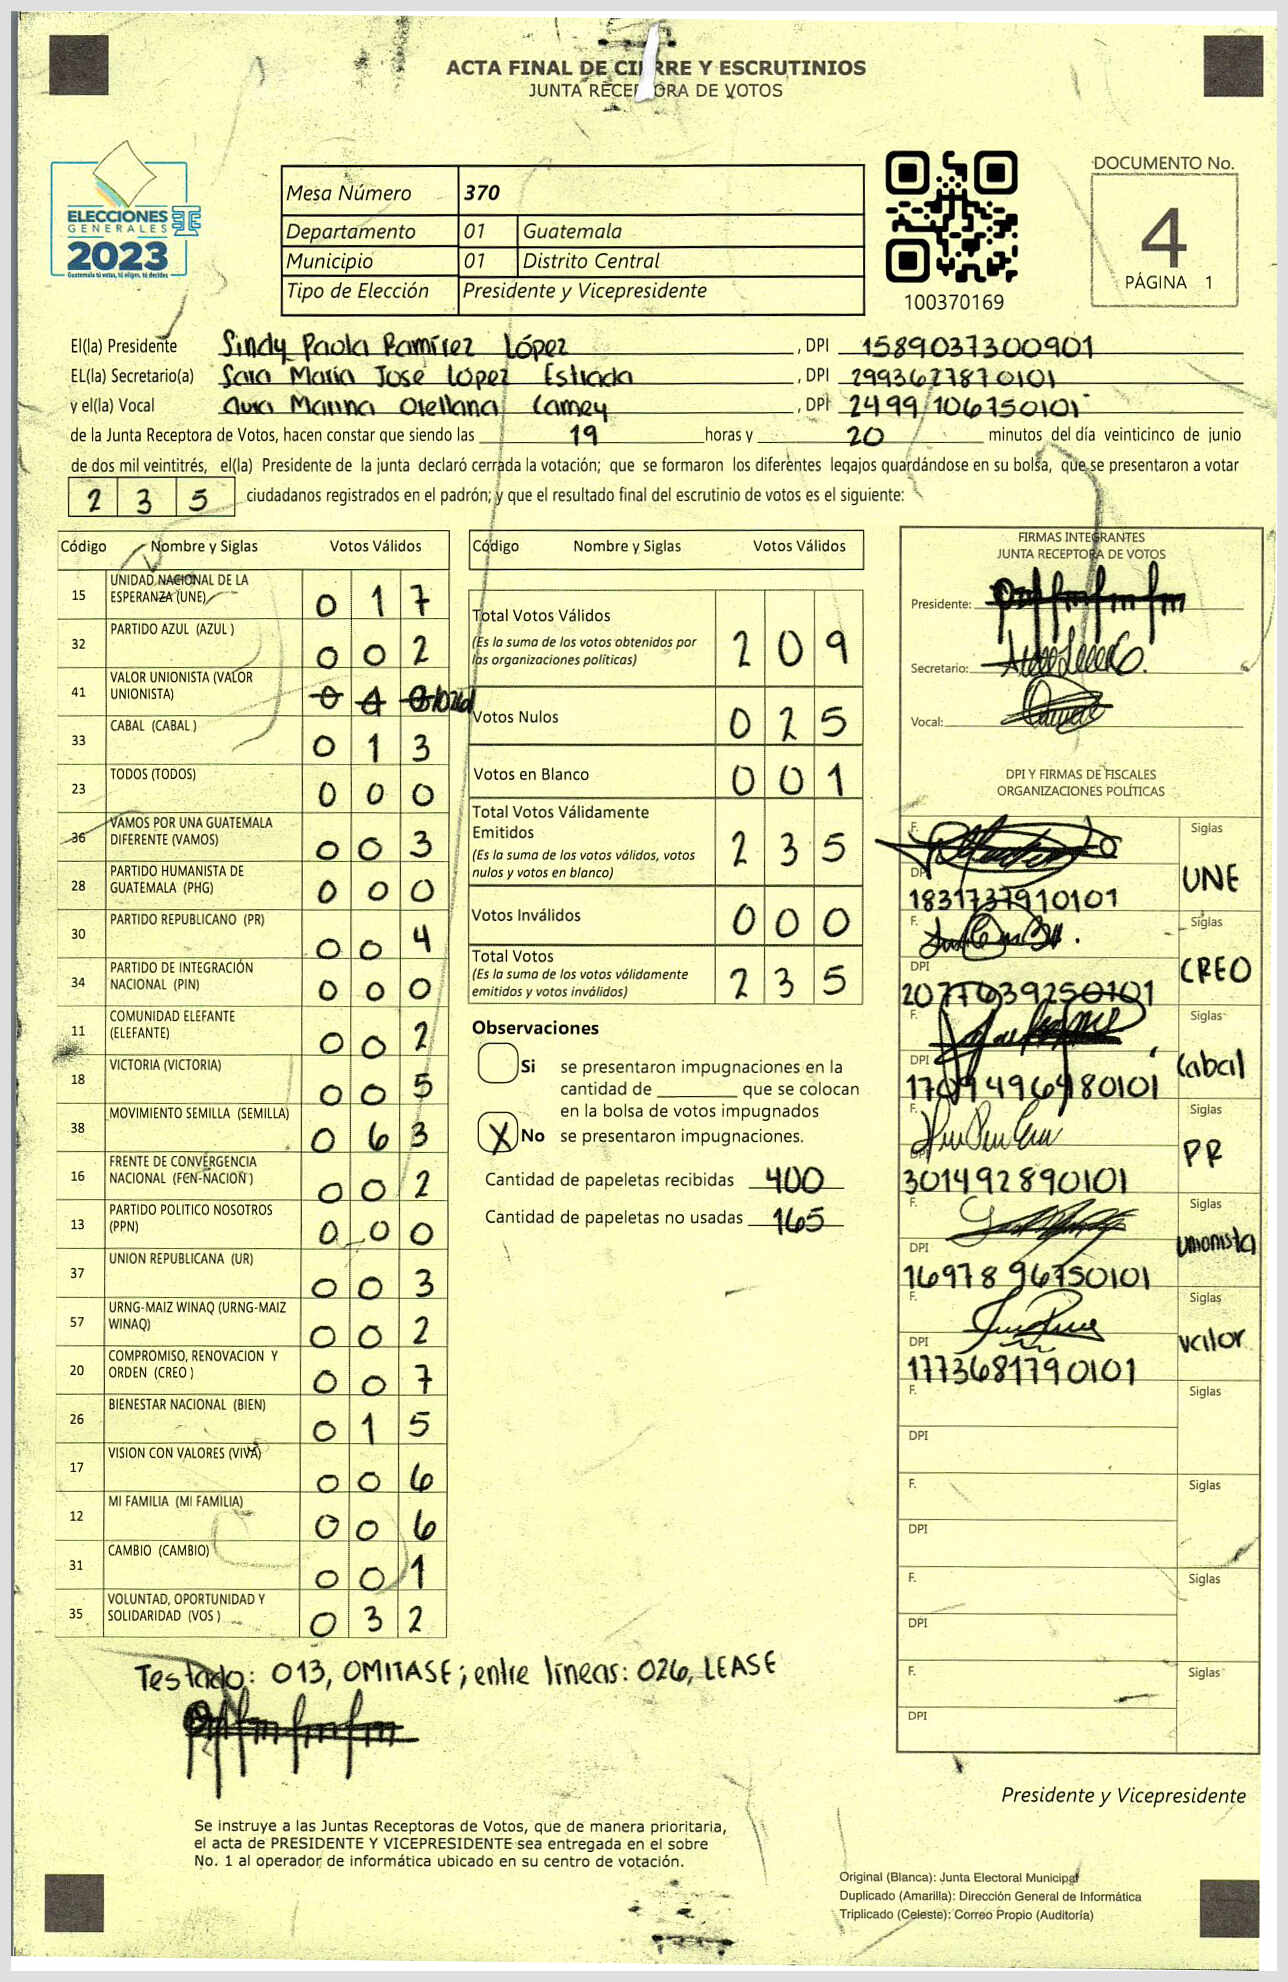 ACTA FINAL DE CIERRE Y ESCRUTINIOS
JUNTA RECEPTORA DE VOTOS
ELECCIONES
GENERALES
2023
Guatemala tú votas, tú eliges, tú decides
Mesa Número 370
Departamento 01 Guatemala
Municipio 01 Distrito Central
Tipo de Elección Presidente y Vicepresidente
100370169
DOCUMENTO No.
4
PÁGINA 1
El(la) Presidente Sindy Paola Ramírez López, DPI 1589037300901
EL(la) Secretario(a) Sara María José López Estrada, DPI 2993627870101
y el(la) Vocal Aura Marina Orellana Camey, DPI 2499106750101
de la Junta Receptora de Votos, hacen constar que siendo las 19 horas y 20 minutos del día veinticinco de junio
de dos mil veintitrés, el(la) Presidente de la junta declaró cerrada la votación; que se formaron los diferentes legajos guardándose en su bolsa, que se presentaron a votar
235 ciudadanos registrados en el padrón; y que el resultado final del escrutinio de votos es el siguiente:
Código Nombre y Siglas Votos Válidos
15 UNIDAD NACIONAL DE LA ESPERANZA (UNE) 0 1 7
32 PARTIDO AZUL (AZUL ) 0 0 2
41 VALOR UNIONISTA (VALOR UNIONISTA) 026
33 CABAL (CABAL ) 0 1 3
23 TODOS (TODOS) 0 0 0
36 VAMOS POR UNA GUATEMALA DIFERENTE (VAMOS) 0 0 3
28 PARTIDO HUMANISTA DE GUATEMALA (PHG) 0 0 0
30 PARTIDO REPUBLICANO (PR) 0 0 4
34 PARTIDO DE INTEGRACIÓN NACIONAL (PIN) 0 0 0
11 COMUNIDAD ELEFANTE (ELEFANTE) 0 0 2
18 VICTORIA (VICTORIA) 0 0 5
38 MOVIMIENTO SEMILLA (SEMILLA) 0 6 3
16 FRENTE DE CONVERGENCIA NACIONAL (FCN-NACION ) 0 0 2
13 PARTIDO POLITICO NOSOTROS (PPN) 0 0 0
37 UNION REPUBLICANA (UR) 0 0 3
57 URNG-MAIZ WINAQ (URNG-MAIZ WINAQ) 0 0 2
20 COMPROMISO, RENOVACION Y ORDEN (CREO ) 0 0 7
26 BIENESTAR NACIONAL (BIEN) 0 1 5
17 VISION CON VALORES (VIVA) 0 0 6
12 MI FAMILIA (MI FAMILIA) 0 0 6
31 CAMBIO (CAMBIO) 0 0 1
35 VOLUNTAD, OPORTUNIDAD Y SOLIDARIDAD (VOS ) 0 3 2
Código Nombre y Siglas Votos Válidos
Total Votos Válidos 2 0 9
(Es la suma de los votos obtenidos por las organizaciones políticas)
Votos Nulos 0 2 5
Votos en Blanco 0 0 1
Total Votos Válidamente Emitidos 2 3 5
(Es la suma de los votos válidos, votos nulos y votos en blanco)
Votos Inválidos 0 0 0
Total Votos 2 3 5
(Es la suma de los votos válidamente emitidos y votos inválidos)
Observaciones
Si se presentaron impugnaciones en la
cantidad de ________ que se colocan
en la bolsa de votos impugnados
X No se presentaron impugnaciones.
Cantidad de papeletas recibidas 400
Cantidad de papeletas no usadas 165
FIRMAS INTEGRANTES
JUNTA RECEPTORA DE VOTOS
Presidente:
Secretario:
Vocal:
DPI Y FIRMAS DE FISCALES
ORGANIZACIONES POLÍTICAS
F. Siglas
DPI 1831737910101 UNE
F. Siglas
DPI 2077639250101 CREO
F. Siglas
DPI 1709496480101 Cabal
F. Siglas
DPI 301492890101 PR
F. Siglas
DPI 1697896750101 unionista
F. Siglas
DPI 1773681790101 valor
F. Siglas
DPI
F. Siglas
DPI
F. Siglas
DPI
F. Siglas
DPI
Testado: 013, OMITASE; entre líneas: 026, LEASE
Presidente y Vicepresidente
Se instruye a las Juntas Receptoras de Votos, que de manera prioritaria,
el acta de PRESIDENTE Y VICEPRESIDENTE sea entregada en el sobre
No. 1 al operador de informática ubicado en su centro de votación.
Original (Blanca): Junta Electoral Municipal
Duplicado (Amarilla): Dirección General de Informática
Triplicado (Celeste): Correo Propio (Auditoría)